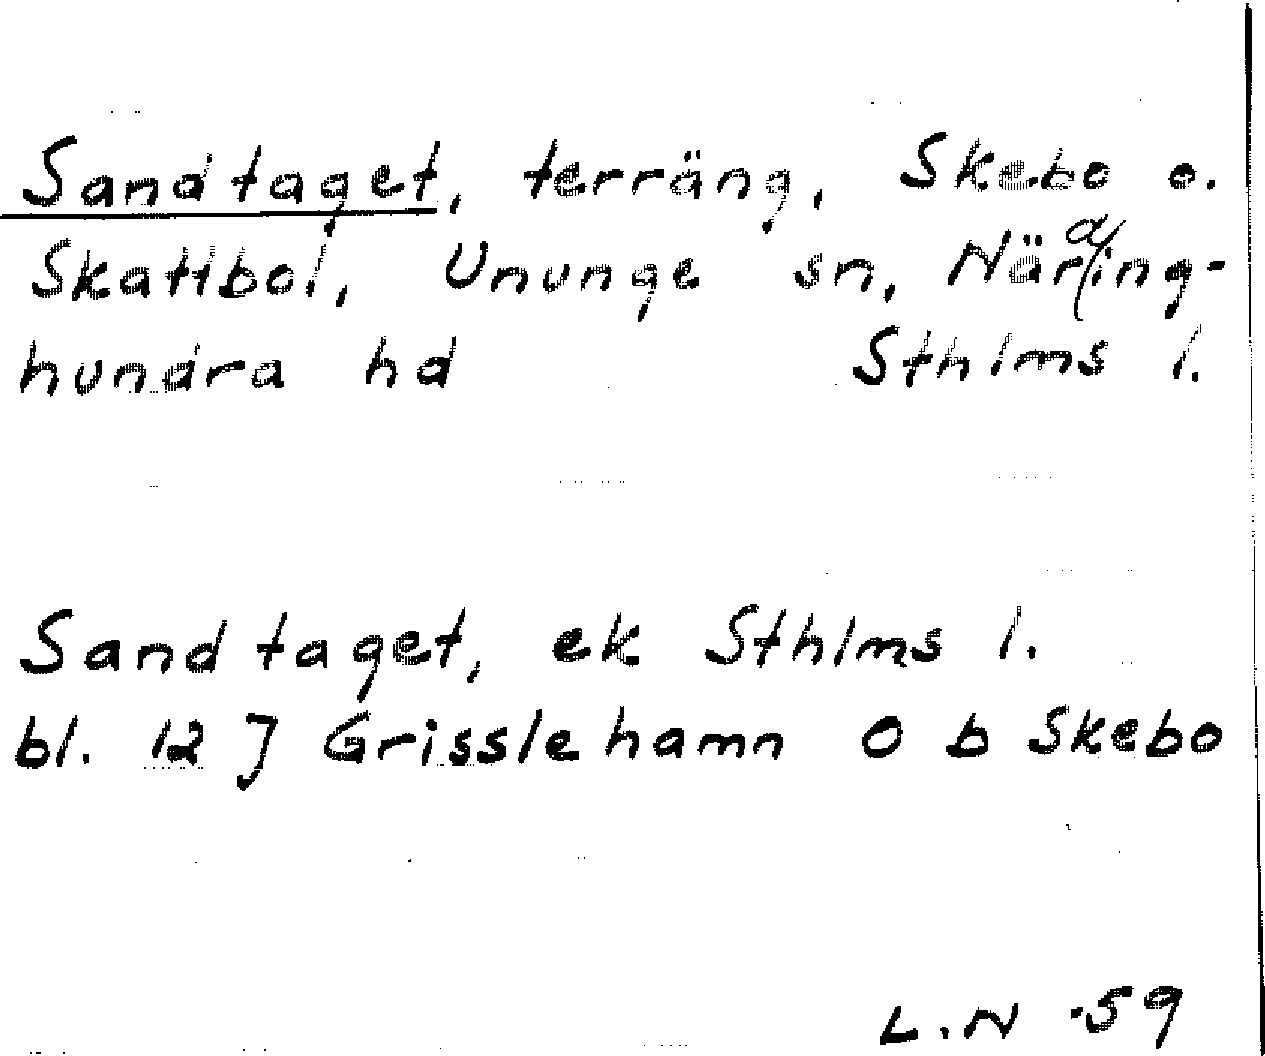 Sandtaget, terräng, Skebo o.
Skattbol, Ununge sn, Näriing-
hundra hd Sthlms l.
Sandtaget, ek Sthlms l.
bl. 12 J Grisslehamn O b Skebo
L.N -59